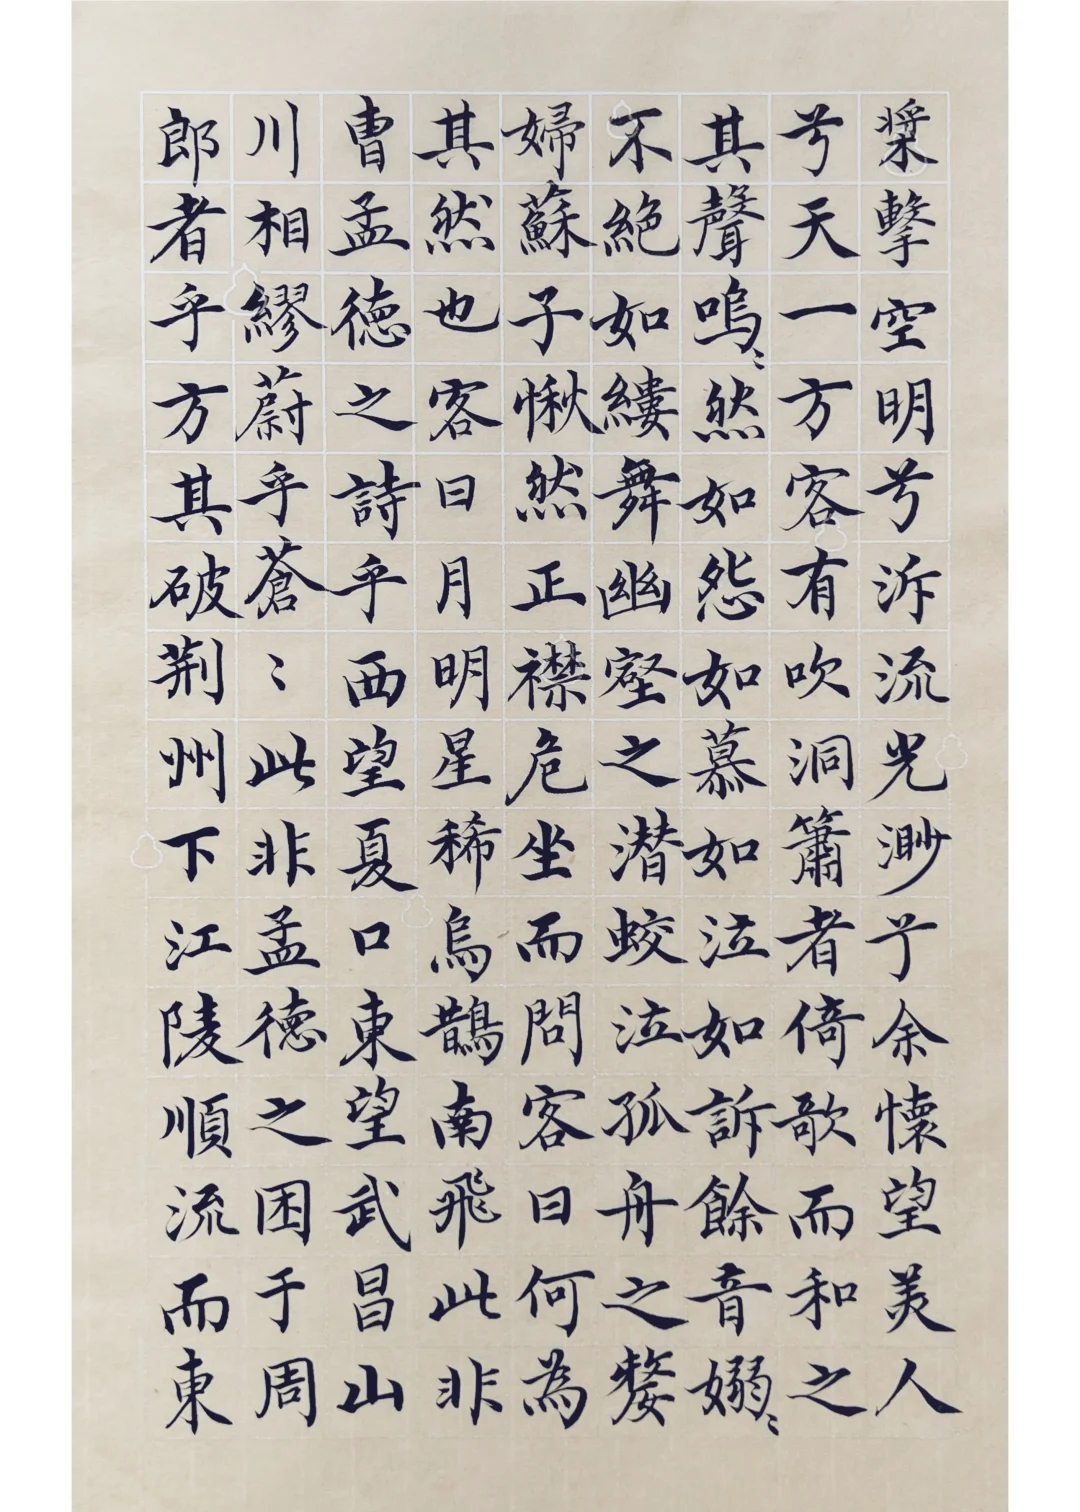 槳擊空明兮泝流光渺兮余懷望美人
兮天一方客有吹洞簫者倚歌而和之
其聲嗚〻然如怨如慕如泣如訴餘音嫋〻
不絕如縷舞幽壑之潛蛟泣孤舟之嫠
婦蘇子愀然正襟危坐而問客曰何為
其然也客曰月明星稀烏鵲南飛此非
曹孟德之詩乎西望夏口東望武昌山
川相繆蔚乎蒼〻此非孟德之困于周
郎者乎方其破荆州下江陵順流而東